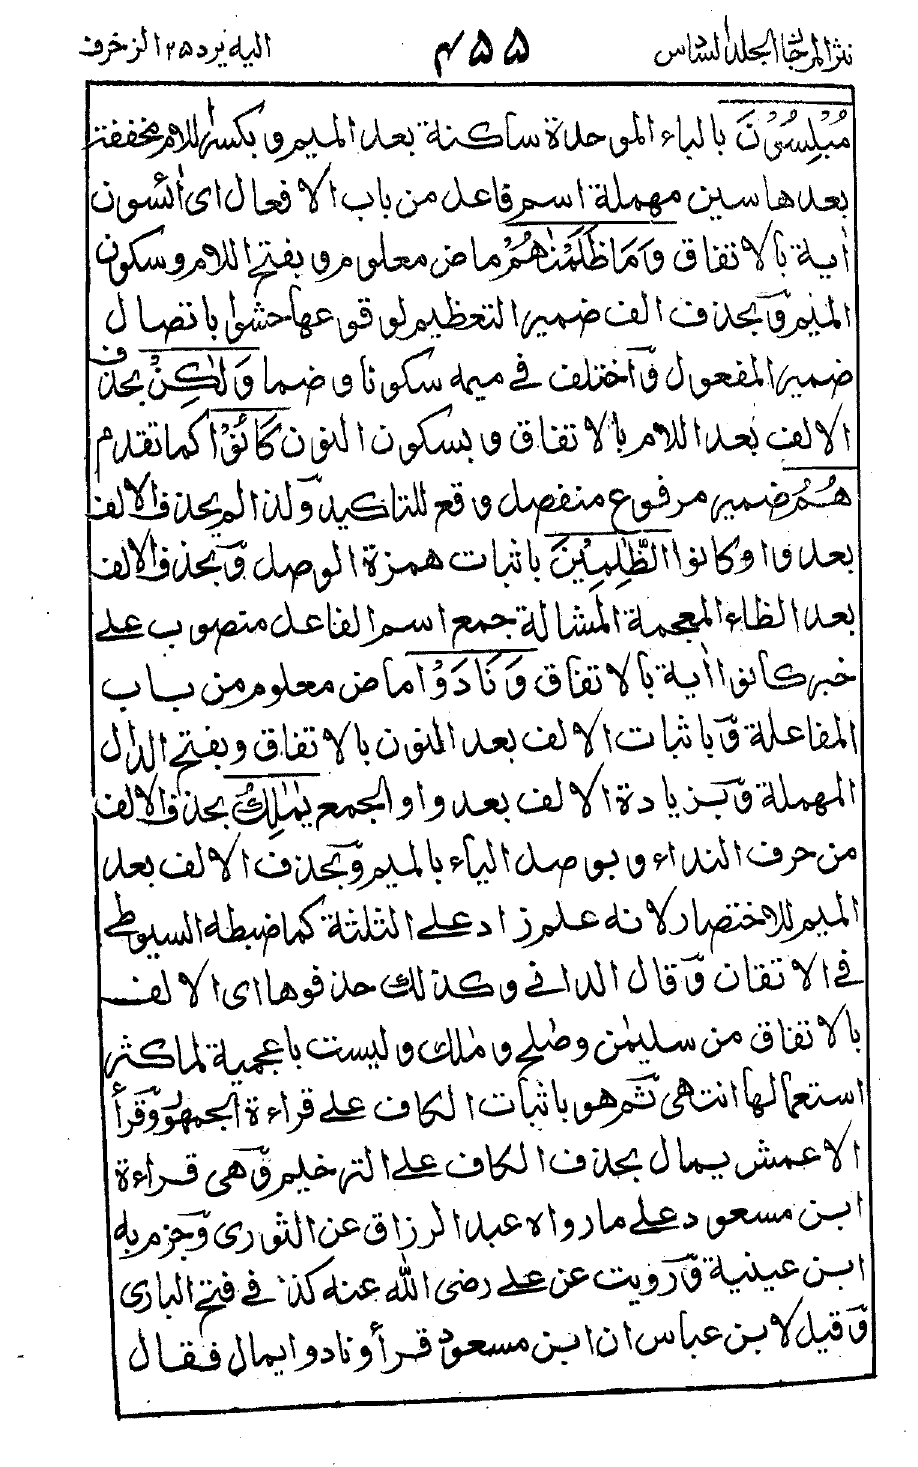 نثر المرجان المجلد السادس ۴۵۵ اليه يرد ۲۵ الزخرف
مُبْلِسُوْنَ بالباء الموحدة ساكنة بعد الميم و بكسر اللام مخففة
بعدها سين مهملة اسم فاعل من باب الافعال اى اٰئسون
اٰية بالاتفاق وَمَا ظَلَمْنٰهُمْ ماض معلوم و بفتح اللام و سكون
الميم و بحذف الف ضمير التعظيم لوقوعها حشوا باتصال
ضمير المفعول و اختلف فى ميمه سكونا و ضما وَلٰكِنْ بحذف
الالف بعد اللام بالاتفاق و بسكون النون كَانُوْا كما تقدم
هُمُ ضمير مرفوع منفصل وقع للتاكيد و لذا لم يحذف الالف
بعد واو كانوا الظّٰلِمِيْنَ باثبات همزة الوصل و بحذف الالف
بعد الظاء المعجمة المشالة جمع اسم الفاعل منصوب على
خبر كانوا اٰية بالاتفاق وَنَادَوْا ماض معلوم من باب
المفاعلة و باثبات الالف بعد النون بالاتفاق و بفتح الدال
المهملة و بزيادة الالف بعد واو الجمع يٰمٰلِكُ بحذف الالف
من حرف النداء و بوصل الياء بالميم و بحذف الالف بعد
الميم للاختصار لانه علم زاد على الثلثة كما ضبطه السيوطى
فى الاتقان و قال الدانى و كذلك حذفوها اى الالف
بالاتفاق من سليمٰن و صٰلح و مٰلك و ليست باعجمية لما كثر
استعمالها انتهى ثم هو باثبات الكاف على قراءة الجمهور و قرأ
الاعمش يمال بحذف الكاف على الترخيم و هى قراءة
ابن مسعود على ما رواه عبد الرزاق عن الثورى و جزم به
ابن عيينة و رويت عن على رضى الله عنه كذا فى فتح البارى
و قيل لابن عباس ان ابن مسعود قرأ و نادوا يمال فقال